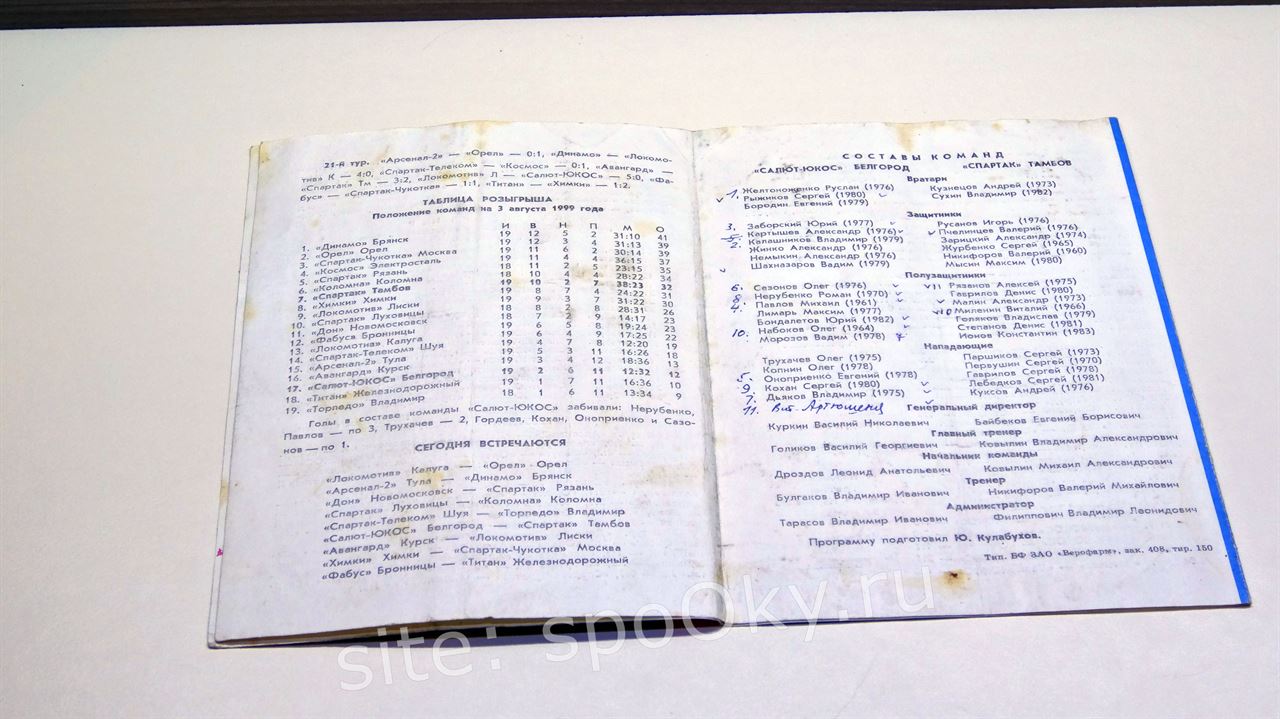 21-й тур. «Арсенал-2» — «Орел» — 0:1, «Динамо» — «Локомо-
тив» К — 4:0, «Спартак-Телеком» — «Космос» — 0:1, «Авангард» —
«Спартак» Тм — 3:2, «Локомотив» Л — «Салют-ЮКОС» — 5:0, «Фа-
бус» — «Спартак-Чукотка» — 1:1, «Титан» — «Химки» — 1:2.
ТАБЛИЦА РОЗЫГРЫША
Положение команд на 3 августа 1999 года
И В Н П М О
1. «Динамо» Брянск 19 12 5 2 31:10 41
2. «Орел» Орел 19 12 3 4 31:13 39
3. «Спартак-Чукотка» Москва 19 11 6 2 30:14 39
4. «Космос» Электросталь 19 11 4 4 36:15 37
5. «Спартак» Рязань 18 11 2 5 23:15 35
6. «Коломна» Коломна 18 10 4 4 28:22 34
7. «Спартак» Тамбов 19 10 2 7 38:23 32
8. «Химки» Химки 19 8 7 4 24:22 31
9. «Локомотив» Лиски 19 9 3 7 31:22 30
10. «Спартак» Луховицы 18 8 2 8 28:31 26
11. «Дон» Новомосковск 18 7 2 9 14:17 23
12. «Фабус» Бронницы 19 6 5 8 19:24 23
13. «Локомотив» Калуга 19 6 4 9 17:25 22
14. «Спартак-Телеком» Шуя 19 4 7 8 12:20 19
15. «Арсенал-2» Тула 19 5 3 11 16:26 18
16. «Авангард» Курск 19 3 4 12 18:36 13
17. «Салют-ЮКОС» Белгород 19 2 6 11 12:32 12
18. «Титан» Железнодорожный 19 1 7 11 16:36 10
19. «Торпедо» Владимир 18 1 6 11 13:34 9
Голы в составе команды «Салют-ЮКОС» забивали: Нерубенко,
Павлов — по 3, Трухачев — 2, Гордеев, Кохан, Оноприенко и Сазо-
нов — по 1.
СЕГОДНЯ ВСТРЕЧАЮТСЯ
«Локомотив» Калуга — «Орел» Орел
«Арсенал-2» Тула — «Динамо» Брянск
«Дон» Новомосковск — «Спартак» Рязань
«Спартак» Луховицы — «Коломна» Коломна
«Спартак-Телеком» Шуя — «Торпедо» Владимир
«Салют-ЮКОС» Белгород — «Спартак» Тамбов
«Авангард» Курск — «Локомотив» Лиски
«Химки» Химки — «Спартак-Чукотка» Москва
«Фабус» Бронницы — «Титан» Железнодорожный
СОСТАВЫ КОМАНД
«САЛЮТ-ЮКОС» БЕЛГОРОД «СПАРТАК» ТАМБОВ
Вратари
Желтоноженко Руслан (1976) Кузнецов Андрей (1973)
1. Рыжиков Сергей (1980) Сухин Владимир (1982)
Бородин Евгений (1979)
Защитники
3. Заборский Юрий (1977) Русанов Игорь (1976)
Картышев Александр (1976) Пчелинцев Валерий (1976)
5. Калашников Владимир (1979) Зарицкий Александр (1974)
2. Жинко Александр (1976) Журбенко Сергей (1965)
Немыкин Александр (1976) Никифоров Валерий (1960)
Шахназаров Вадим (1979) Мысин Максим (1980)
Полузащитники
6. Сезонов Олег (1976) 11 Рязанов Алексей (1975)
8. Нерубенко Роман (1970) Гаврилов Денис (1980)
4. Павлов Михаил (1961) Малин Александр (1973)
Лимарь Максим (1977) 10 Миленин Виталий (1966)
Бондалетов Юрий (1982) Голяков Владислав (1979)
Набоков Олег (1964) Степанов Денис (1981)
10. Морозов Вадим (1978) Ионов Константин (1983)
Нападающие
Трухачев Олег (1975) Паршиков Сергей (1973)
Копнин Олег (1978) Первушин Сергей (1970)
5. Оноприенко Евгений (1978) Гаврилов Сергей (1978)
9. Кохан Сергей (1980) Лебедков Сергей (1981)
7. Дьяков Владимир (1975) Куксов Андрей (1976)
11. Вит. Артюшеня
Генеральный директор
Куркин Василий Николаевич Байбеков Евгений Борисович
Главный тренер
Голиков Василий Георгиевич Ковылин Владимир Александрович
Начальник команды
Дроздов Леонид Анатольевич Ковылин Михаил Александрович
Тренер
Булгаков Владимир Иванович Никифоров Валерий Михайлович
Администратор
Тарасов Владимир Иванович Филиппович Владимир Леонидович
Программу подготовил Ю. Кулабухов.
Тип. БФ ЗАО «Верофарм», зак. 408, тир. 150
site: spoOky.ru